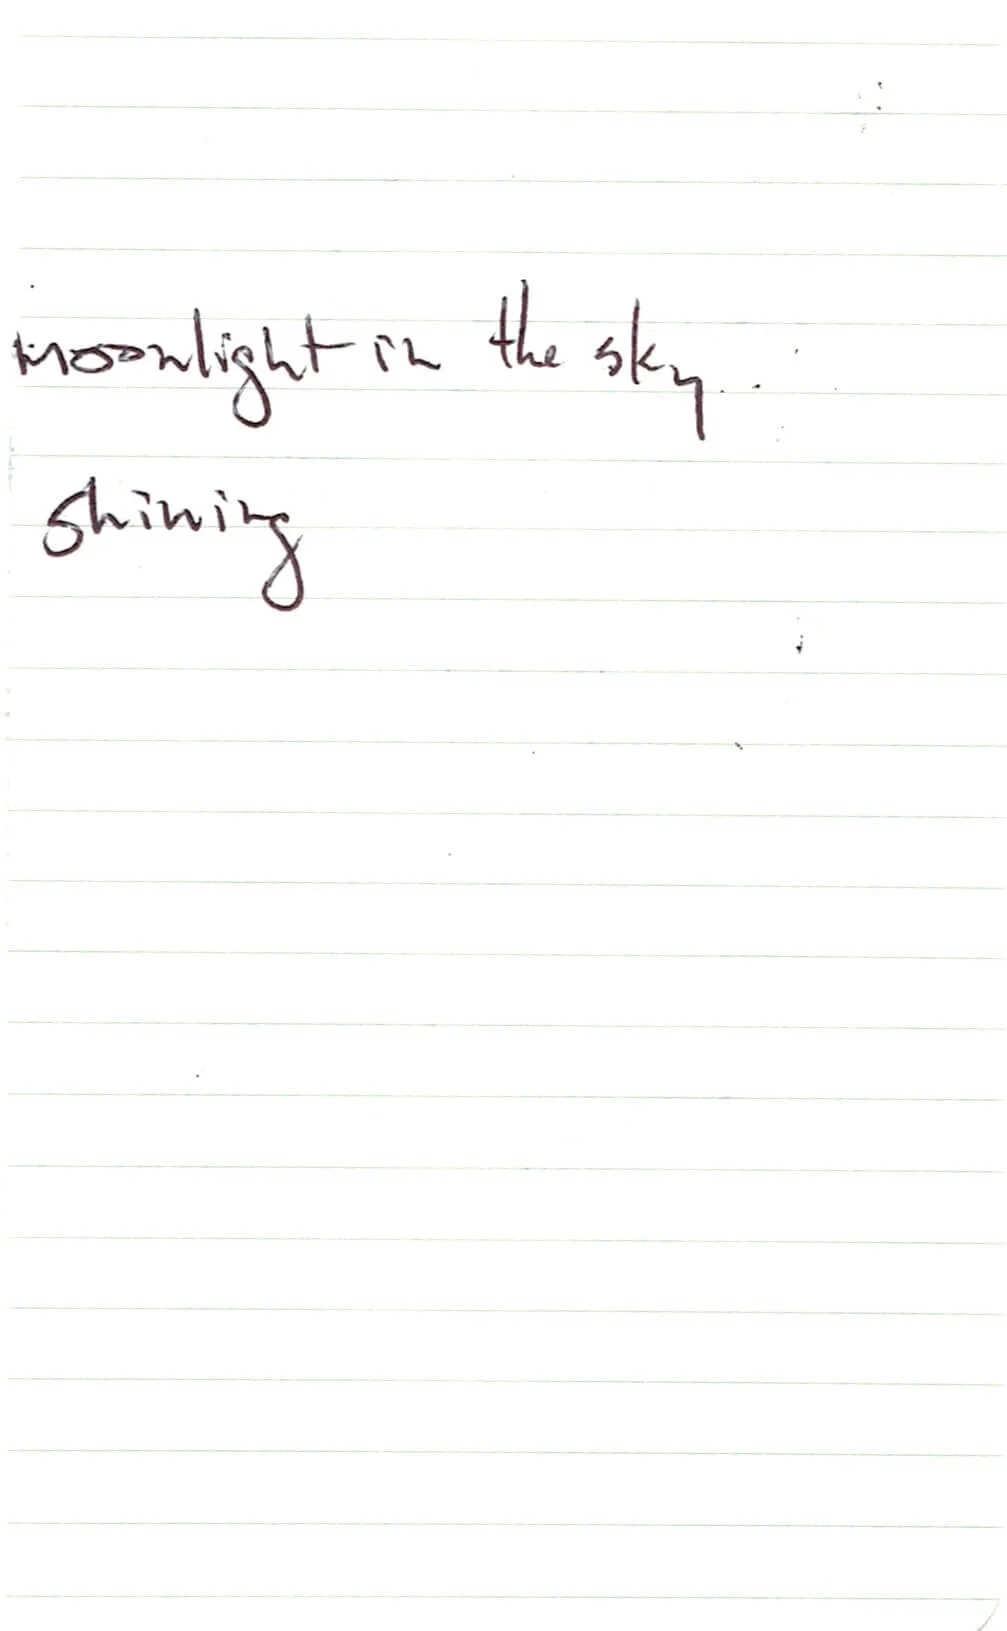 moonlight in the sky..
shining